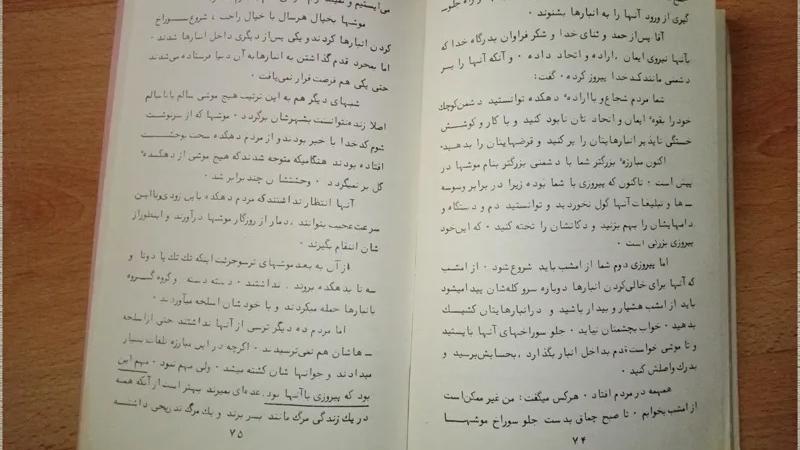 گیری از ورود آنها را به انبارها بشنوند ۰
آقا پس از حمد و ثنای خدا و شکر فراوان بدرگاه خدا که
بآنها نیروی ایمان ، اراده و اتحاد داده ۰ و آنکه آنها را بر
دشمنی مانند کدخدا پیروز کرده ۰ گفت :
شما مردم شجاع و بااراده ٔ دهکده توانستید دشمن کوچک
خود را بقوه ٔ ایمان و اتحاد تان نابود کنید و با کار و کوشش
خستگی ناپذیر انبارهایتان را پر کنید و قرضهایتان را بدهید ۰
اکنون مبارزه ٔ بزرگتر شما با دشمنی بزرگتر بنام موشها در
پیش است ۰ تاکنون که پیروزی با شما بوده زیرا در برابر وسوسه
ـ ها و تبلیغات آنها گول نخوردید و توانستید دم و دستگاه و
دامهایشان را بهم بزنید و دکانشان را تخته کنید ۰ که این خود
پیروزی بزرگی است ۰
اما پیروزی دوم شما از امشب باید شروع شود ۰ از امشب
که آنها برای خالی کردن انبارها دوباره سر و کله شان پیدا میشود
باید از امشب هشیار و بیدار باشید و در انبارهایتان کشیک
بدهید ۰ خواب بچشمتان نیاید ۰ جلو سوراخهای آنها بایستید
و تا موشی خواست قدم بداخل انبار بگذارد ، بحسابش برسید و
بدرک واصلش کنید ۰
همهمه در مردم افتاد ۰ هرکس میگفت : من غیر ممکن است
از امشب بخوابم ۰ تا صبح چماق بدست جلو سوراخ موشهـا
۷۴
موشها بخیال هرسال با خیال راحت ، شروع بسوراخ
کردن انبارها کردند و یکی پس از دیگری داخل انبارها شدند ۰
اما بمجرد قدم گذاشتن به انبارها به آن دنیا فرستاده می شدند
حتی یکی هم فرصت فرار نمی یافت ۰
شبهای دیگر هم به این ترتیب هیچ موشی سالم یا ناسالم
اصلا زنده نتوانست بشهرشان برگردد ۰ موشها که از سرنوشت
شوم کدخدا با خبر بودند و از مردم دهکده سخت بوحشت
افتاده بودند هنگامیکه متوجه شدند که هیچ موشی از دهکده ٔ
گل بر نمیگردد ۰ وحشتشان چند برابر شد ۰
آنها انتظار نداشتند که مردم دهکده باین زودی و بااین
سرعت عجیب بتوانند ، دمار از روزگار موشها درآورند و اینطور از
شان انتقام بگیرند ۰
از آن به بعد موشهای ترسو جرئت اینکه تک تک یا دوتا و
سه تا بدهکده بروند نداشتند ۰ دسته دسته و گروه گروه
بانبارها حمله میکردند و با خودشان اسلحه میآوردند ۰
اما مردم ده دیگر ترسی از آنها نداشتند حتی از اسلحه
ـ هاشان هم نمی ترسیدند ۰ اگرچه در این مبارزه تلفات بسیار
میدادند و جوانها شان کشته میشد ۰ ولی مهم نبود ۰ مهم این
بود که پیروزی باآنها بود . عده ای بمیرند بهتر است از آنکه همه
در یک زندگی مرگ مانند بسر برند و یک مرگ تدریجی داشته
۷۵